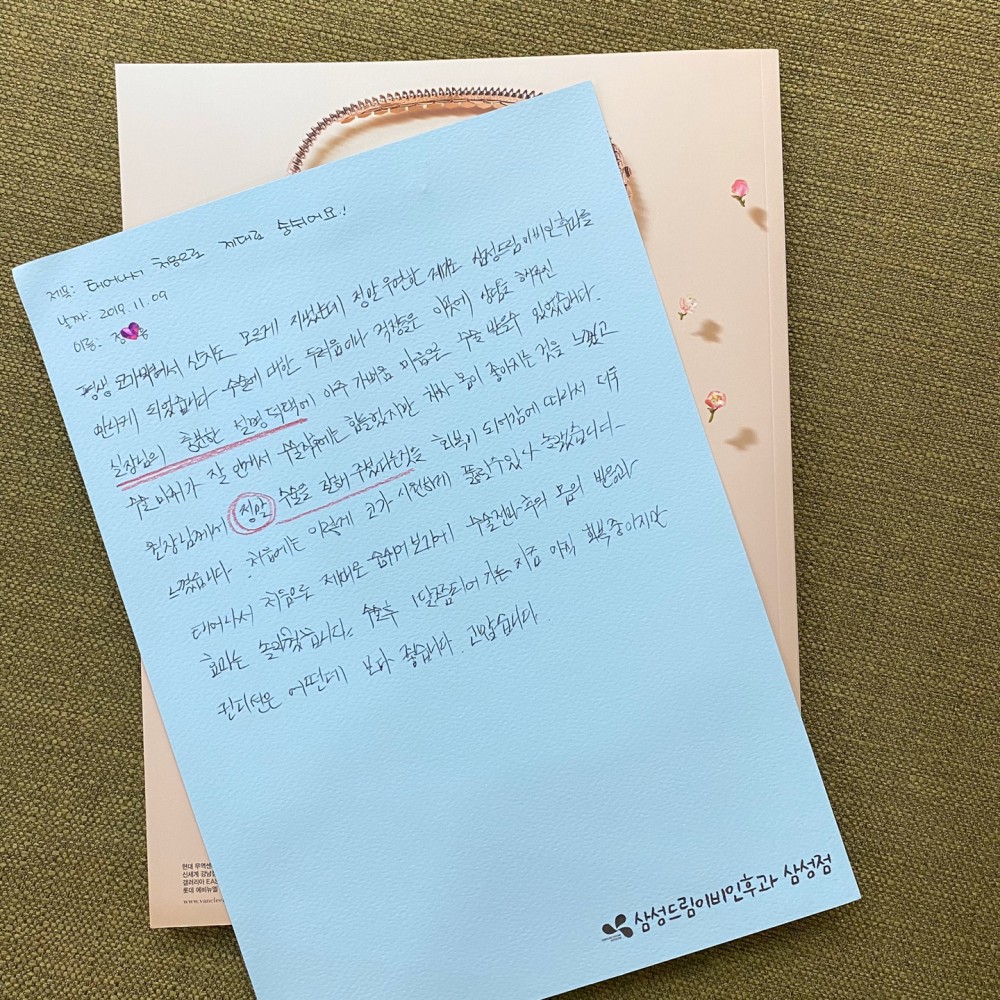 제목: 태어나서 처음으로 제대로 숨쉬어요!
날짜: 2019. 11. 09
이름: 정 용
평생 코가막혀서 산지도 모르게 지냈는데 정말 우연한 계기로 삼성드림이비인후과를
만나게 되었습니다. 수술에 대한 두려움이나 걱정은 이곳에 상담을 해주신
실장님의 충분한 설명 덕택에 아주 가벼운 마음으로 수술 받을수 있었습니다.
수술 마취가 잘 안깨서 수술직후에는 힘들었지만 차차 몸이 좋아지는 것을 느꼈고
원장님께서 정말 수술을 잘해주셨다는것을 회복이 되어감에 따라서 더욱
느꼈습니다. 처음에는 이렇게 코가 시원하게 뚫릴수있나 놀랐습니다~
태어나서 처음으로 제대로 숨쉬어 보기에 수술전과 후의 몸의 반응과
효과는 놀라웠습니다. 수술후 1달쯤되어 가는 지금 아직 회복중이지만
컨디션은 어떤때 보다 좋습니다. 고맙습니다.
삼성드림이비인후과 삼성점
현대 무역센
신세계 강남
갤러리아 EAS
롯데 에비뉴엘
www.vanclee